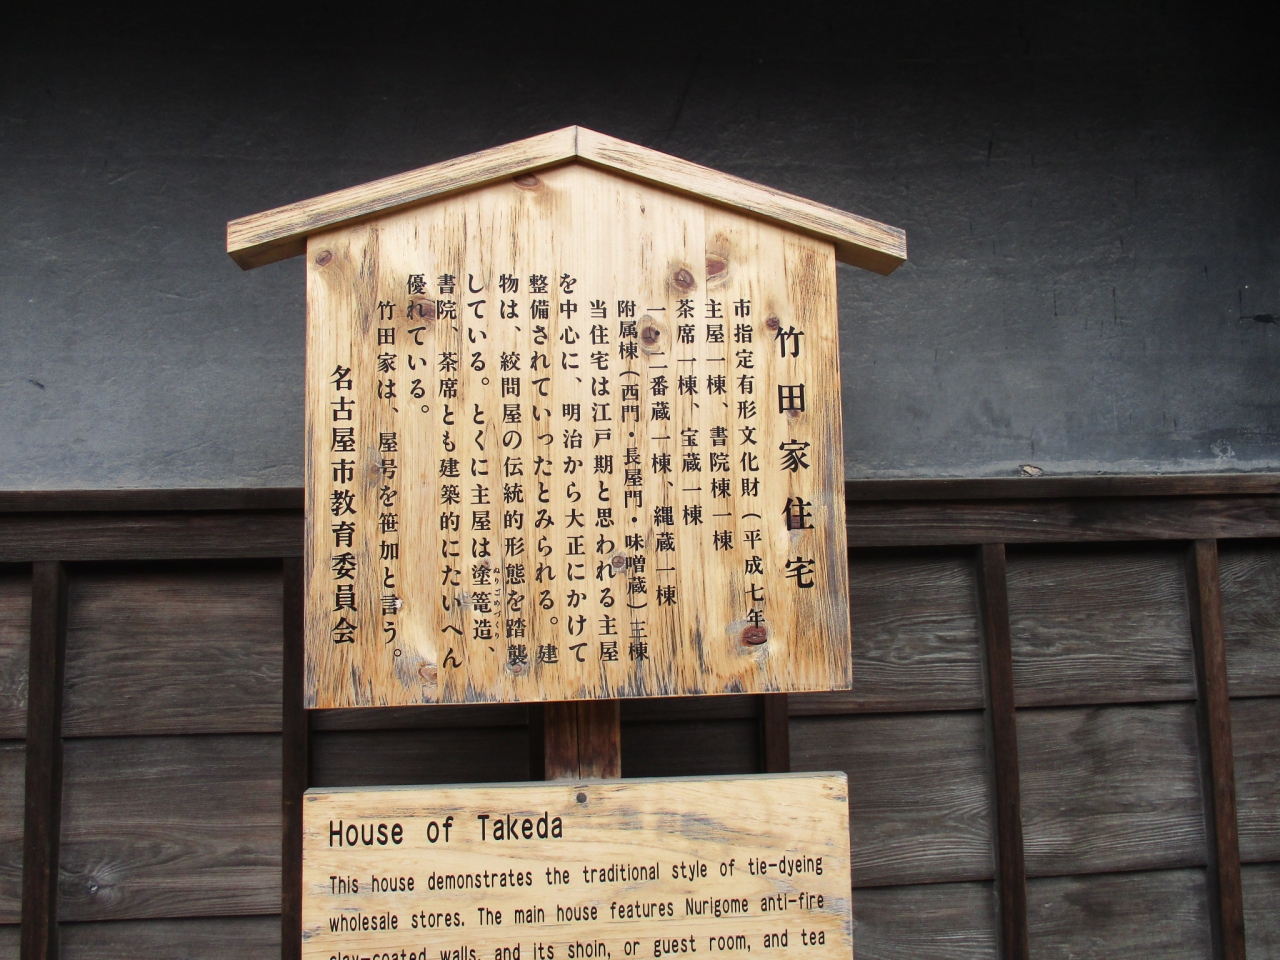 竹田家住宅
市指定有形文化財(平成七年)
主屋一棟、書院棟一棟
茶席一棟、宝蔵一棟
一・二番蔵一棟、縄蔵一棟
附属棟(西門・長屋門・味噌蔵)三棟
当住宅は江戸期と思われる主屋
を中心に、明治から大正にかけて
整備されていったとみられる。建
物は、絞問屋の伝統的形態を踏襲
している。とくに主屋は塗篭造、
ぬりごめづくり
書院、茶席とも建築的にたいへん
優れている。
竹田家は、屋号を笹加と言う。
名古屋市教育委員会
House of Takeda
This house demonstrates the traditional style of tie-dyeing
wholesale stores. The main house features Nurigome anti-fire
clay-coated walls, and its shoin, or guest room, and tea